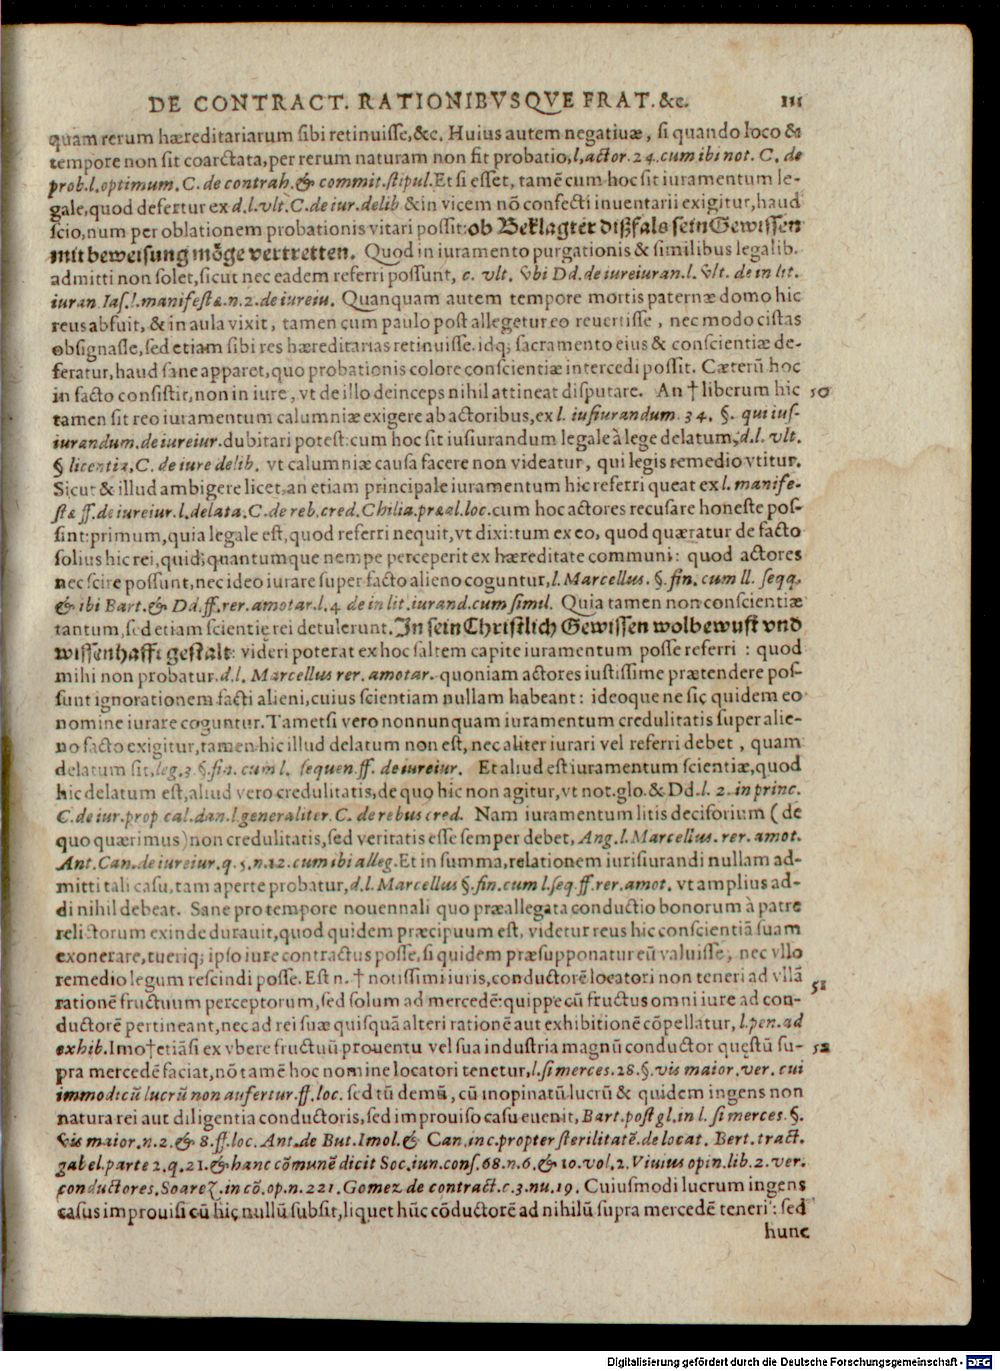 DE CONTRACT. RATIONIBVSQVE FRAT. &c. 111
quam rerum hæreditariarum sibi retinuisse, &c. Huius autem negatiuæ, si quando loco &
tempore non sit coarctata, per rerum naturam non fit probatio, l, actor. 24. cum ibi not. C. de
prob. l. optimum. C. de contrah. & commit. stipul. Et si esset, tamē cum hoc sit iuramentum le-
gale, quod defertur ex d. l. vlt. C. de iur. delib & in vicem nō confecti inuentarii exigitur, haud
scio, num per oblationem probationis vitari possit: ob Beklagter dißfals sein Gewissen
mit beweisung möge vertretten. Quod in iuramento purgationis & similibus legalib.
admitti non solet, sicut nec eadem referri possunt, c. vlt. vbi Dd. de iureiuran. l. vlt. de in lit.
iuran. Ias. l. manifestæ. n. 2. de iureiu. Quanquam autem tempore mortis paternæ domo hic
reus abfuit, & in aula vixit, tamen cum paulo post allegetur eo reuertisse, nec modo cistas
obsignasse, sed etiam sibi res hæreditarias retinuisse. idq; sacramento eius & conscientiæ de-
feratur, haud sane apparet, quo probationis colore conscientiæ intercedi possit. Cæterū hoc
in facto consistit, non in iure, vt de illo deinceps nihil attineat disputare. An † liberum hic 50
tamen sit reo iuramentum calumniæ exigere ab actoribus, ex l. iusiurandum. 34. §. qui ius-
iurandum. de iureiur. dubitari potest: cum hoc sit iusiurandum legale à lege delatum, d. l. vlt.
§ licentia, C. de iure delib. vt calumniæ causa facere non videatur, qui legis remedio vtitur.
Sicut & illud ambigere licet, an etiam principale iuramentum hic referri queat ex l. manife-
stæ ff. de iureiur. l. delata. C. de reb. cred. Chilia. præal. loc. cum hoc actores recusare honeste pos-
sint: primum, quia legale est, quod referri nequit, vt dixi: tum ex eo, quod quæratur de facto
solius hic rei, quid; quantumque nempe perceperit ex hæreditate communi: quod actores
nec scire possunt, nec ideo iurare super facto alieno coguntur, l. Marcellus. §. fin. cum ll. seqq.
& ibi Bart. & Dd. ff. rer. amotar. l. 4 de in lit. iurand. cum simil. Quia tamen non conscientiæ
tantum, sed etiam scientię rei detulerunt. In sein Christlich Gewissen wolbewust vnd
wissenhafft gestalt: videri poterat ex hoc saltem capite iuramentum posse referri : quod
mihi non probatur. d. l. Marcellus rer. amotar. quoniam actores iustissime prætendere pos-
sunt ignorationem facti alieni, cuius scientiam nullam habeant: ideoque ne sic quidem eo
nomine iurare coguntur. Tametsi vero nonnunquam iuramentum credulitatis super alie-
no facto exigitur, tamen hic illud delatum non est, nec aliter iurari vel referri debet, quam
delatum sit, leg. 3. §. fin. cum l. sequen. ff. de iureiur. Et aliud est iuramentum scientiæ, quod
hic delatum est, aliud vero credulitatis, de quo hic non agitur, vt not. glo. & Dd. l. 2. in princ.
C. de iur. prop cal. dan. l. generaliter. C. de rebus cred. Nam iuramentum litis decisorium (de
quo quærimus) non credulitatis, sed veritatis esse semper debet, Ang. l. Marcellus. rer. amot.
Ant. Can. de iureiur. q. 5. n. 12. cum ibi alleg. Et in summa, relationem iurisiurandi nullam ad-
mitti tali casu, tam aperte probatur, d. l. Marcellus §. fin. cum l. seq. ff. rer. amot. vt amplius ad-
di nihil debeat. Sane pro tempore nouennali quo præallegata conductio bonorum à patre
relictorum exinde durauit, quod quidem præcipuum est, videtur reus hic conscientiā suam
exonerare, tueriq; ipso iure contractus posse, si quidem præsupponatur eū valuisse, nec vllo
remedio legum rescindi posse. Est n. † notissimi iuris, conductorē locatori non teneri ad vllā 51
rationē fructuum perceptorum, sed solum ad mercedē: quippe cū fructus omni iure ad con-
ductorē pertineant, nec ad rei suæ quisquā alteri rationē aut exhibitionē cōpellatur, l. pen. ad
exhib. Imo † etiāsi ex vbere fructuū prouentu vel sua industria magnū conductor quęstū su- 52
pra mercedē faciat, nō tamē hoc nomine locatori tenetur, l. si merces. 28. §. vis maior. ver. cui
immodicū lucrū non aufertur. ff. loc. sed tū demū, cū inopinatū lucrū & quidem ingens non
natura rei aut diligentia conductoris, sed improuiso casu euenit, Bart. post gl. in l. si merces. §.
vis maior. n. 2. & 8. ff. loc. Ant. de But. Imol. & Can. in c. propter sterilitatē. de locat. Bert. tract.
gabel. parte 2. q. 21. & hanc cōmunē dicit Soc. iun. cons. 68. n. 6. & 10. vol. 2. Viuius opin. lib. 2. ver.
conductores. Soarez. in cō. op. n. 221. Gomez de contract. c. 3. nu. 19. Cuiusmodi lucrum ingens
casus improuisi cū hic nullū subsit, liquet hūc cōductorē ad nihilū supra mercedē teneri : sed
hunc
Digitalisierung gefördert durch die Deutsche Forschungsgemeinschaft - DFG